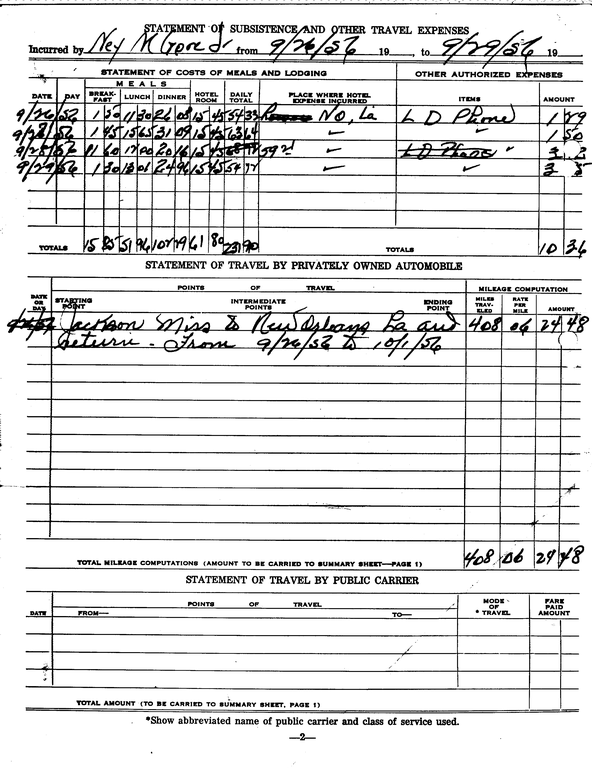 STATEMENT OF SUBSISTENCE AND OTHER TRAVEL EXPENSES
Incurred by Ney M Gore Jr from 9/26/56 19 , to 9/29/56 19
STATEMENT OF COSTS OF MEALS AND LODGING OTHER AUTHORIZED EXPENSES
MEALS
DATE DAY BREAK-FAST LUNCH DINNER HOTEL ROOM DAILY TOTAL PLACE WHERE HOTEL EXPENSE INCURRED ITEMS AMOUNT
9/26/56 1 50 11 30 26 08 15 45 54 33 N O, La L D Phone 1 29
9/28/56 1 45 15 65 31 09 15 45 63 64 1 50
11 60 12 00 20 16 15 45 L D Phone
9/29/56 1 30 13 01 24 96 15 45 54 72
TOTALS 15 85 51 96 102 29 61 80 231 90 TOTALS 10 36
STATEMENT OF TRAVEL BY PRIVATELY OWNED AUTOMOBILE
POINTS OF TRAVEL MILEAGE COMPUTATION
DATE OR DAY STARTING POINT INTERMEDIATE POINTS ENDING POINT MILES TRAV-ELED RATE PER MILE AMOUNT
Jackson Miss to New Orleans La and 408 06 24 48
return - From 9/26/56 to 10/1/56
TOTAL MILEAGE COMPUTATIONS (AMOUNT TO BE CARRIED TO SUMMARY SHEET—PAGE 1) 408 06 24 48
STATEMENT OF TRAVEL BY PUBLIC CARRIER
POINTS OF TRAVEL MODE OF * TRAVEL FARE PAID AMOUNT
DATE FROM— TO—
TOTAL AMOUNT (TO BE CARRIED TO SUMMARY SHEET, PAGE 1)
*Show abbreviated name of public carrier and class of service used.
—2—